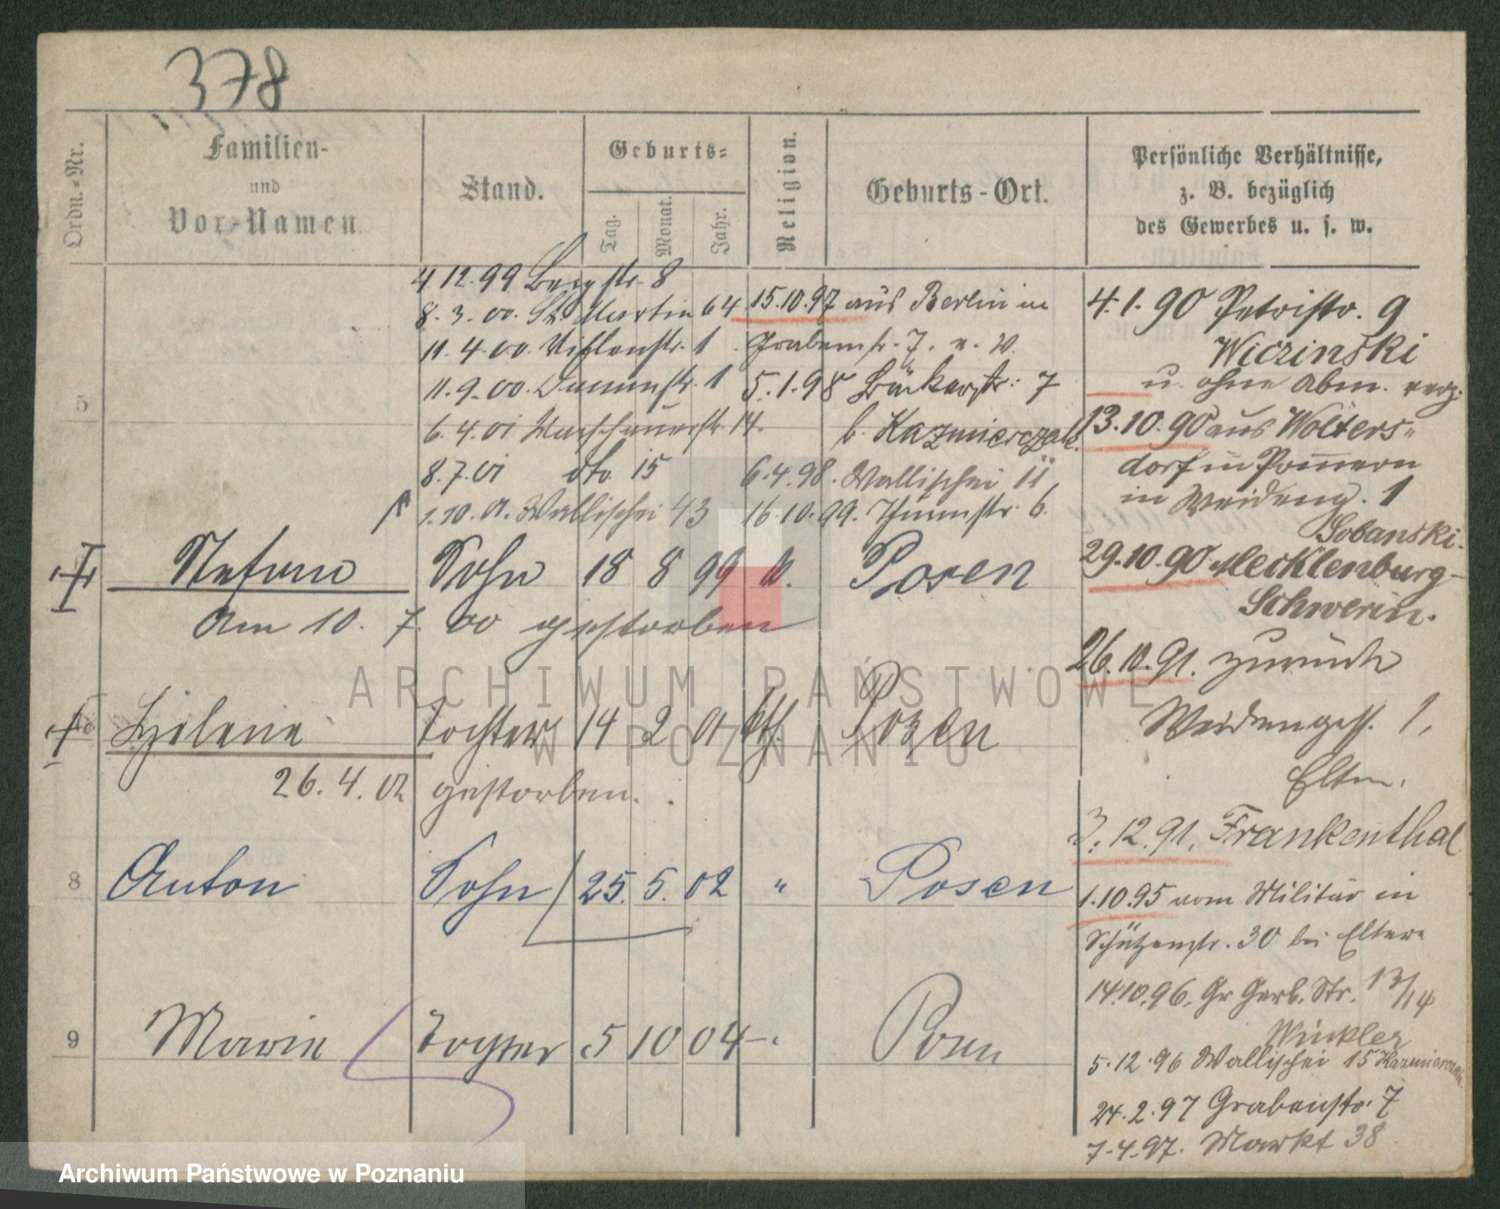 378
Ordn.-Nr.
Familien-
und
Vor-Namen.
Stand.
Geburts-
Tag.
Monat.
Jahr.
Religion.
Geburts-Ort.
Persönliche Verhältnisse,
z. B. bezüglich
des Gewerbes u. s. w.
4 12.99 Bergstr. 8
8.3.00. St Martin 64
11.4.00. 1
11.9.00. Dammstr. 1
6.4.01 Warschauerstr. 14.
8.7.01 dto 15
1.10.01. Wallischei 43
15.10.97 aus Berlin in
Grabenstr. 7. n. W.
5.1.98 Bäckerstr. 7
b. Kazmierczak.
6.4.98. Wallischei 11
16.10.99. Thurmstr. 6.
5
Stefan Sohn 18 8 99 k. Posen
Am 10. 7. 00 gestorben
Helene Tochter 14 2 01 kth. Posen
26.4.02 gestorben.
8 Anton Sohn 25. 5. 02 " Posen
9 Marie Tochter 5 10 04 -. Posen
4.1.90 Petristr. 9
Wiczinski
u. ohne Abm. verz.
13.10.90 aus Wolters-
dorf in Pommern
in Weideng. 1
Sobanski.
29.10.90 Mecklenburg-
Schwerin.
26.10.91. zurück
Weidengasse 1,
Eltern.
3.12.91. Frankenthal
1.10.95 vom Militär in
Schützenstr. 30 bei Eltern
14.10.96. Gr Gerb. Str. 13/14
Winkler
5.12.96 Wallischei 15
24.2.97 Grabenstr. 7
7.4.97. Markt 38
ARCHIWUM PAŃSTWOWE
W POZNANIU
Archiwum Państwowe w Poznaniu